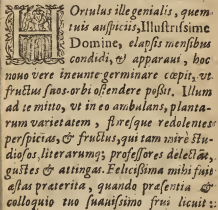 HOrtulus ille genialis, quem
tuis auspiciis, Illustrissime
Domine, elapsis mensibus
condidi, & apparaui, hoc
nouo vere ineunte germinare cœpit, vt
fructus suos orbi ostendere possit. Illum
ad te mitto, vt in eo ambulans, planta-
rum varietatem, floresque redolentes
perspicias, & fructus, qui tam mirè stu-
diosos, literarumq; professores delectāt,
gustes & attingas. Felicissima mihi fuit
æstas præterita, quando præsentia &
colloquio tuo suauissimo frui licuit: